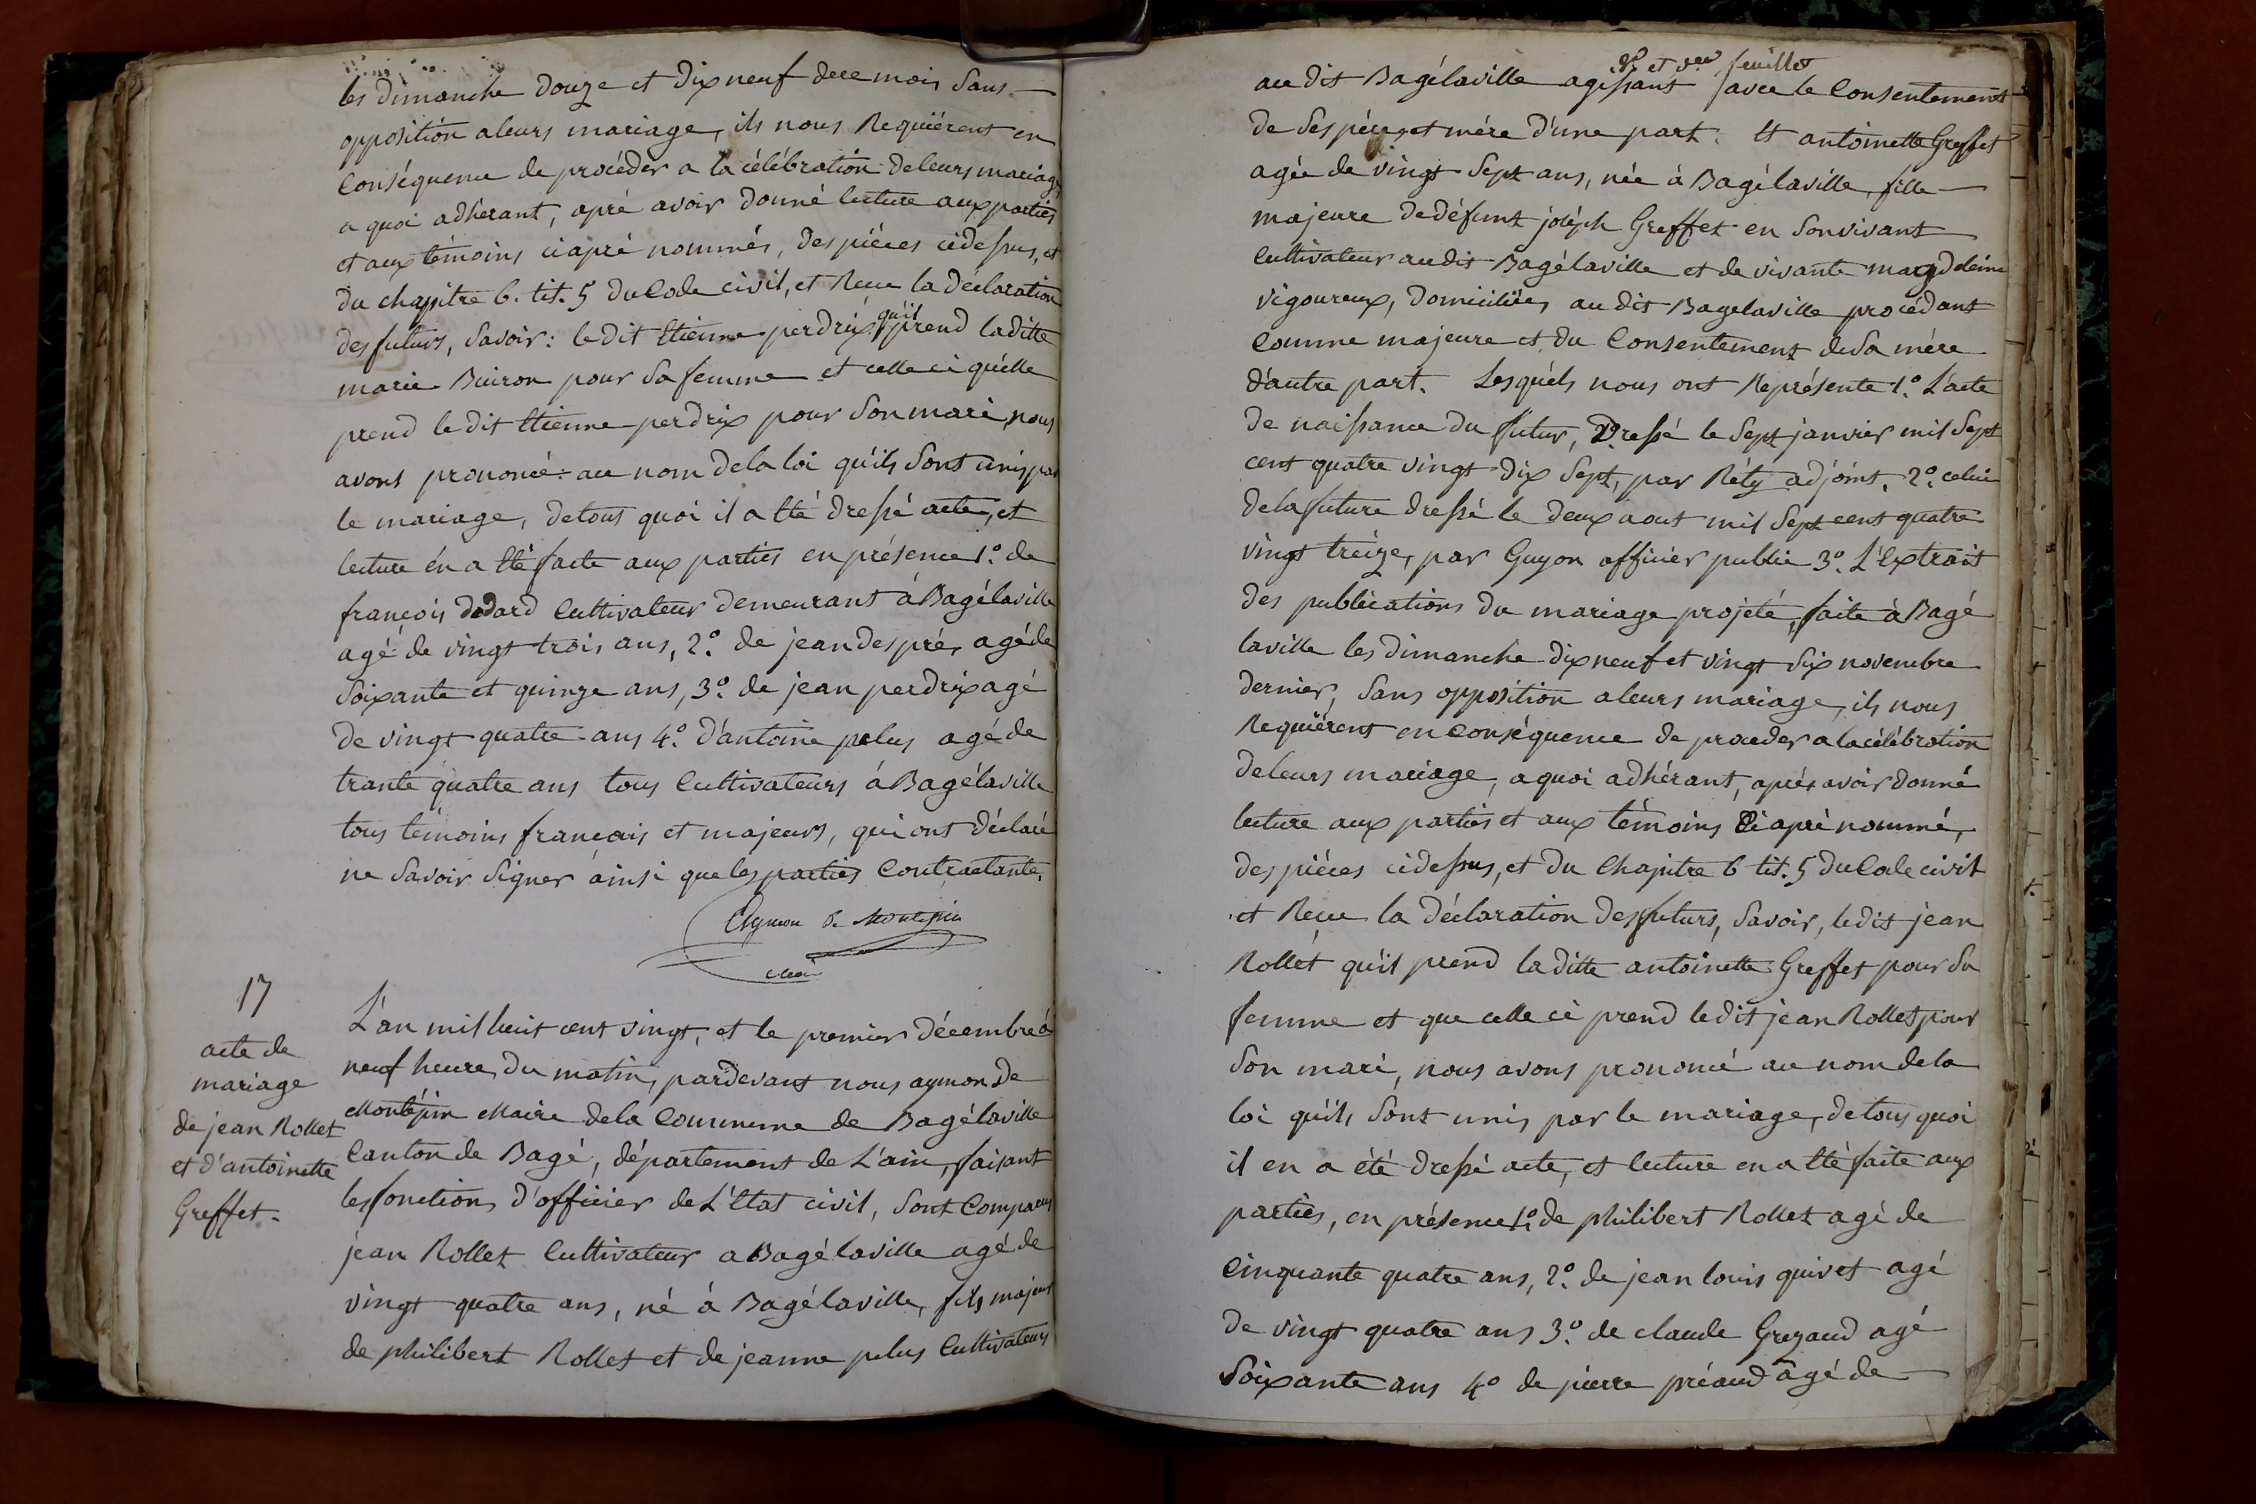 les dimanche douze et dix neuf de ce mois sans
opposition a leurs mariage, ils nous Requiérent en
Conséquence de procéder a la célébration de leurs mariage
a quoi adhérant, apré avoir donné lecture aux parties
et aux témoins ci apré nommés, des piéces ci dessus, et
du chapitre 6. tit. 5 du Code civil, et Recu la déclaration
des futurs, savoir : le dit Etienne perdrix qu'il prend la ditte
marie Buiron pour sa femme et celle ci qu'elle
prend le dit Etienne perdrix pour son mari, nous
avons prononcé au nom de la loi qu'ils sont unis par
le mariage, de tout quoi il a été dressé acte, et
lecture én a été faite aux parties en présence 1.º de
françois dodard Cultivateur demeurant à Bagélaville
agé de vingt trois ans, 2.º de jean després agé de
soixante et quinze ans, 3.º de jean perdrix agé
de vingt quatre ans 4.º d'antoine pelus agé de
trante quatre ans tous Cultivateurs á Bagélaville
tous témoins francais et majeurs, qui ont déclaré
ne savoir signer ainsi que les parties Contractante.
Aymon de Montépin
Maire
17
acte de
mariage
de jean Rollet
et d'antoinette
Greffet.
L'an mil huit cent vingt, et le premier décembre á
neuf heure du matin, pardevant nous aymon de
Montépin Maire de la Commune de Bagélaville
Canton de Bagé, département de L'ain, faisant
les fonctions d'officier de L'Etat civil, sont Comparus
jean Rollet Cultivateur a Bagélaville agé de
vingt quatre ans, né á Bagélaville, fils majeur
de philibert Rollet et de jeanne pelus Cultivateurs
et feuillet
au dit Bagélaville agissant avec le Consentement
de ses pére et mére d'une part. Et antoinette Greffet
agée de vingt sept ans, née à Bagélaville, fille
majeure de défunt joséph Greffet en son vivant
Cultivateur au dit Bagélaville et de vivante magdeleine
vigoureux, domiciliées au dit Bagelaville procédant
Comme majeure et du Consentement de sa mére
d'autre part. Lesquéls nous ont Représente 1.º L'acte
de naissance du futur, Dressé le sept janvier mil sept
cent quatre vingt dix sept, par Réty adjoint. 2.º celui
de la future dressé le deux aout mil sept cent quatre
vingt treize, par Guyon officier public 3.º L'Extrait
des publications du mariage projeté, faite à Bagé
laville les dimanche dix neuf et vingt six novembre
dernier, sans opposition a leurs mariage, ils nous
Requiérent en Conséquence de proceder a la célébration
de leurs mariage, a quoi adhérant, aprés avoir donné
lecture aux parties et aux témoins Ci apré nommé,
des piéces ci dessus, et du Chapitre 6 tit. 5 du Code civil
et Recu la déclaration des futurs, savoir, le dit jean
Rollet qu'il prend la ditte antoinette Greffet pour sa
femme et que celle ci prend le dit jean Rollet pour
son mari, nous avons prononcé au nom de la
loi qu'ils sont unis par le mariage, de tous quoi
il en a été dressé acte, et lecture en a été faite aux
parties, en présence 1.º de philibert Rollet agé de
Cinquante quatre ans, 2.º de jean louis quivet agé
de vingt quatre ans 3.º de claude Grezaud agé
soixante ans 4.º de pierre préaud âgé de